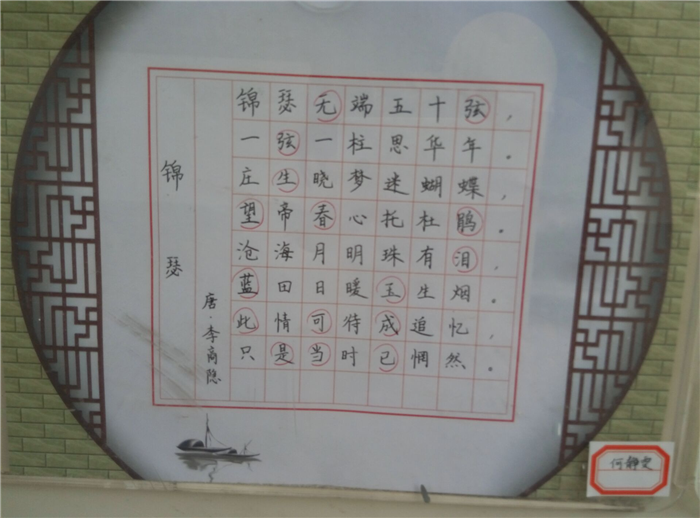 锦瑟
唐·李商隐
锦瑟无端五十弦，
一弦一柱思华年。
庄生晓梦迷蝴蝶，
望帝春心托杜鹃。
沧海月明珠有泪，
蓝田日暖玉生烟。
此情可待成追忆，
只是当时已惘然。